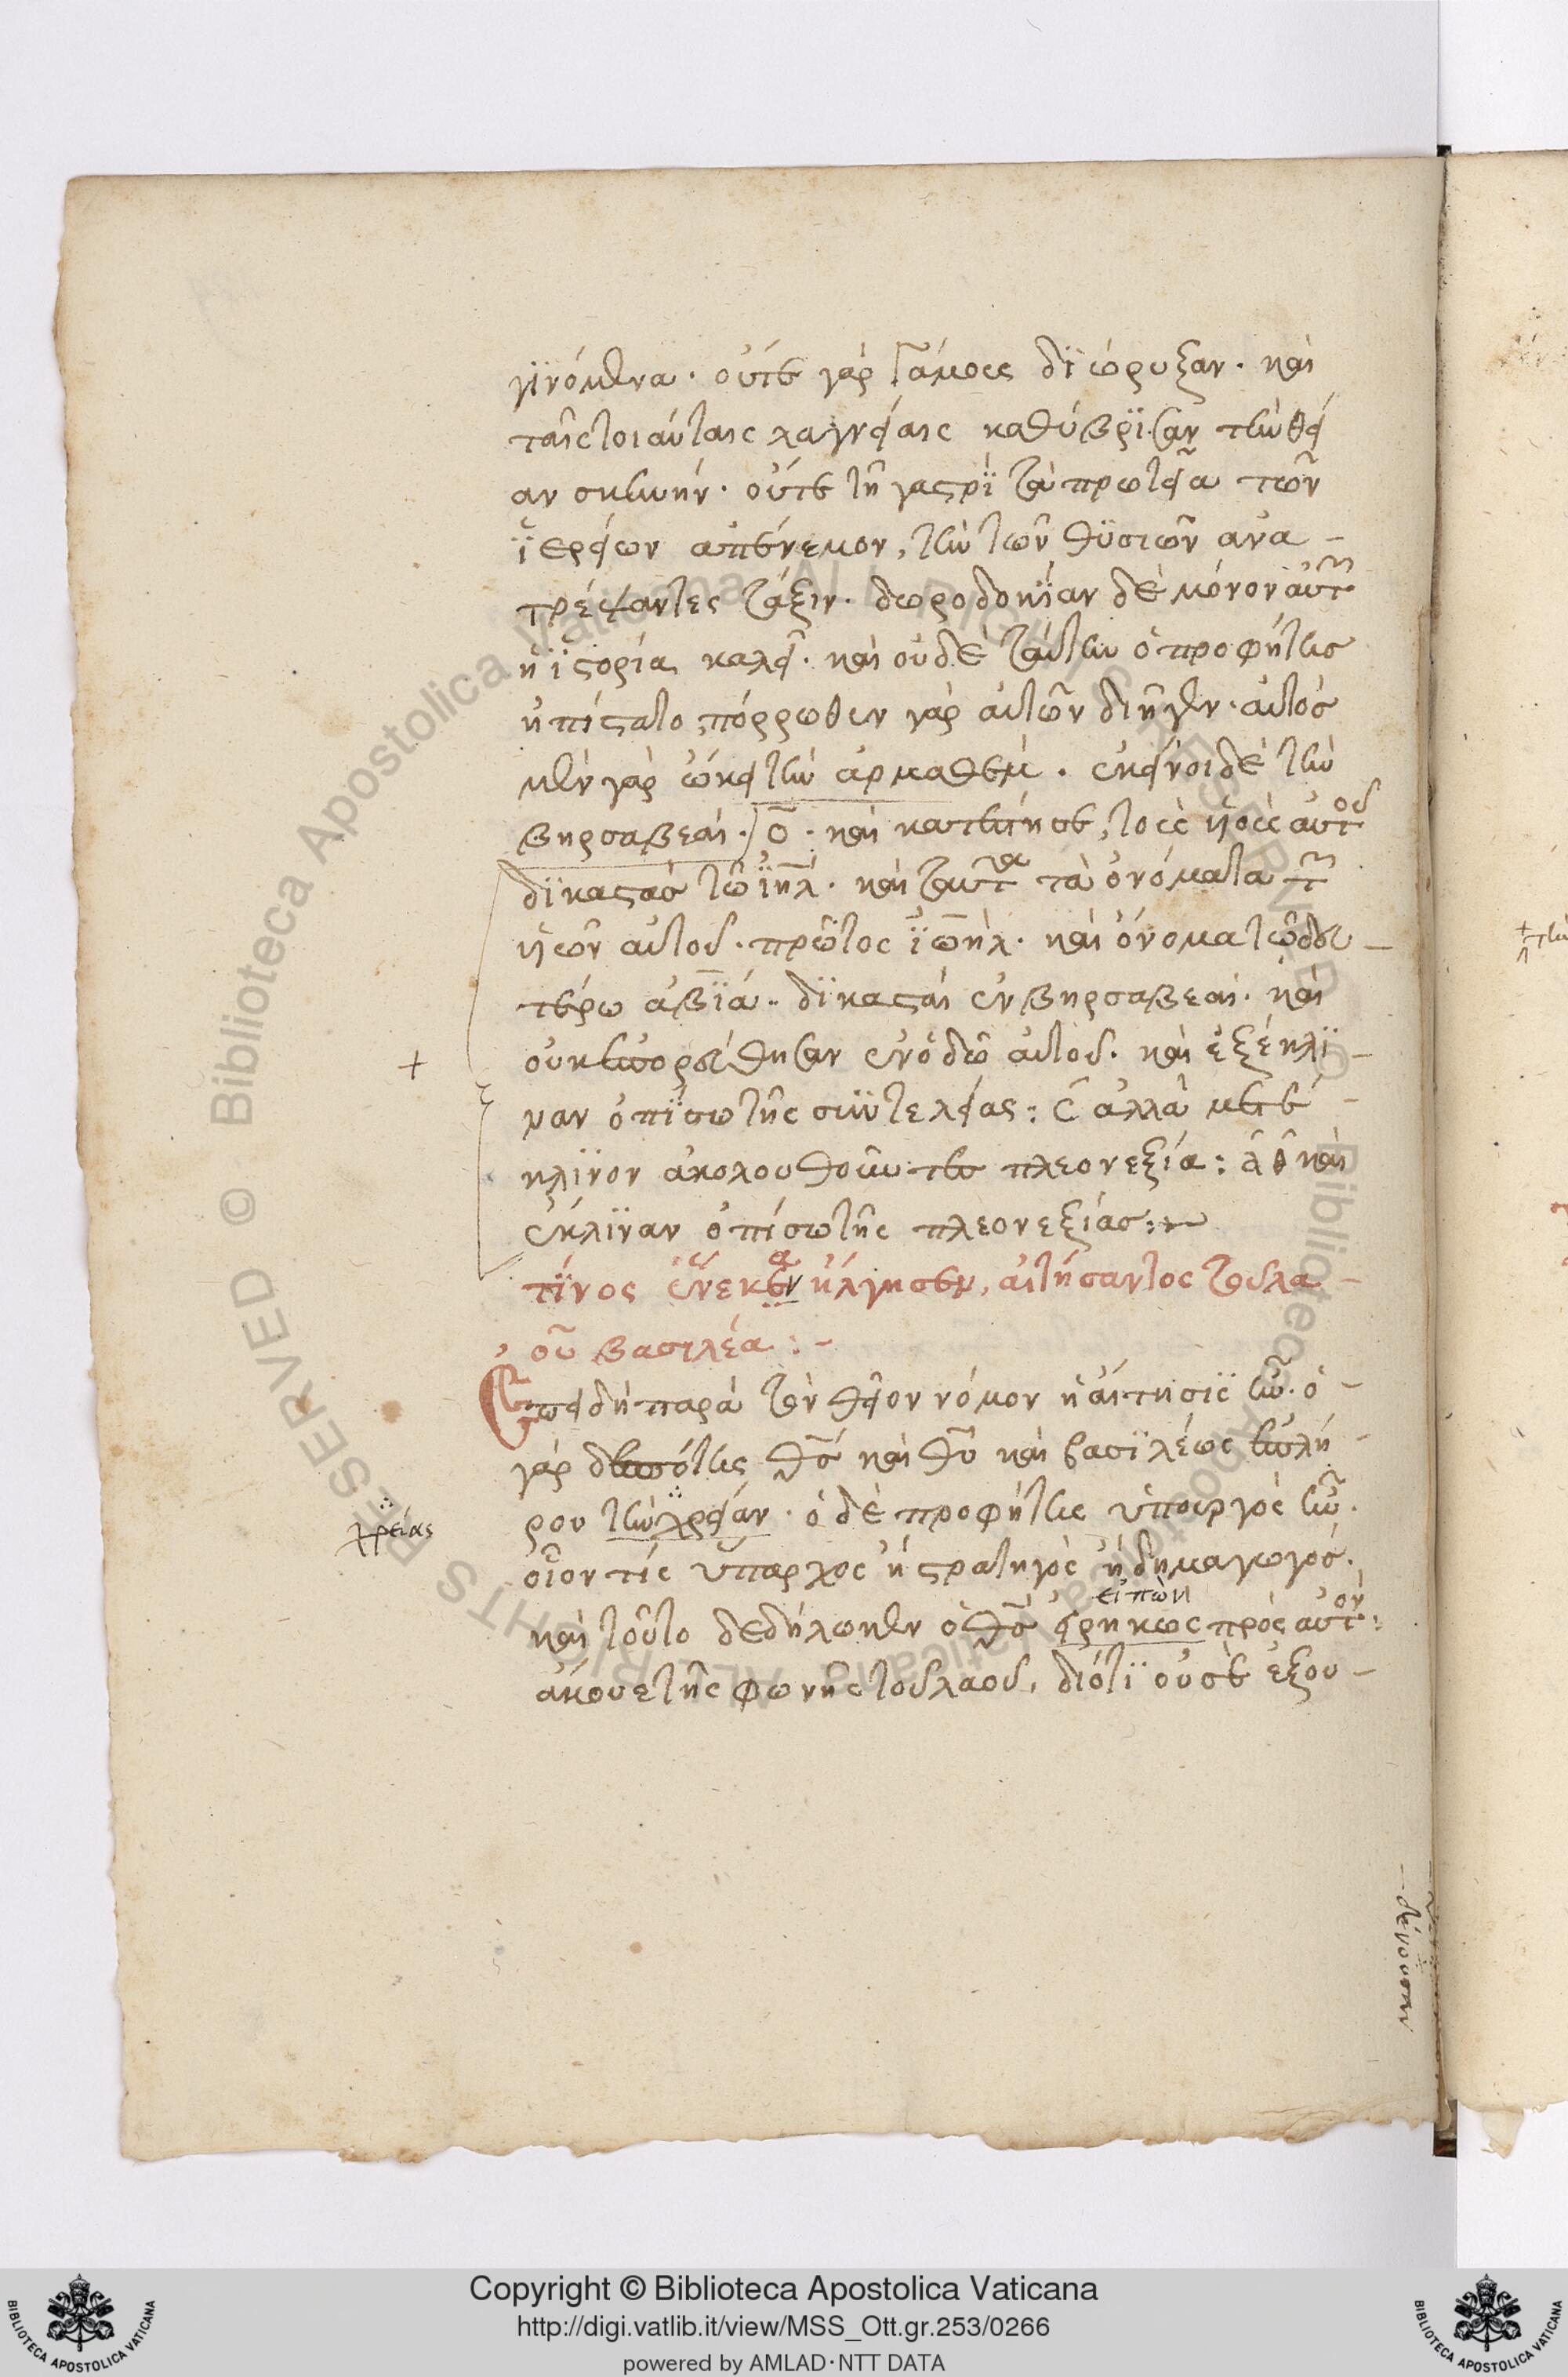 γινόμενα· οὔτε γὰρ γάμους διώρυξαν· καὶ
ταῖς τοιαύταις λαγνείαις καθύβρισαν τὴν θεί
αν σκηνήν· οὔτε τῆ γαστρὶ τὰ πρωτεῖα τῶν
ἱερείων ἀπένεμον, τὴν τῶν θυσιῶν ἀνα-
τρέψαντες τάξιν· δωροδοκίαν δὲ μόνον αὐτῶν
ἡ ἱστορία καλεῖ· καὶ οὐδὲ ταύτην ὁ προφήτης
ἠπίστατο, πόρρωθεν γὰρ αὐτῶν διῆγεν· αὐτὸσ
μὲν γὰρ ὤκει τὴν ἀρμαθέμ· ἐκεῖνοι δὲ τὴν
βηρσαβεαί· καὶ κατέστησε, τοὺς υἱοὺς αὐτοῦ
δικαστὰσ τῶ ἰηλ· καὶ ταῦτα τὰ ὀνόματα τῶν
υἱῶν αὐτοῦ· πρῶτος ἰωήλ· καὶ ὄνομα τῶ δευ-
τέρω ἀβϊά·· δικασταὶ ἐν βηρσαβεαί· καὶ
οὐκ ἐπορεύθησαν ἐν ὁδῶ αὐτοῦ· καὶ ἐξέκλι-
ναν ὀπίσω τῆς συντελείας: ἀλλὰ μετέ-
κλινον ἀκολουθοῦντες πλεονεξία: καὶ
ἔκλιναν ὀπίσω τῆς πλεονεξίασ:
τίνος ἕνεκεν ἤλγησεν, αἰτήσαντος τοῦ λα-
οῦ βασιλέα:-
Ἐπειδὴ παρὰ τὸν θεῖον νόμον ἡ αἴτησις ἦν· ὁ-
γὰρ δεσπότης θσ καὶ θυ καὶ βασιλέως ἐπλή-
ρου τὴν χρείαν· ὁ δὲ προφήτης ὑπουργὸς ἦν·
χρείας
οἷον τίς ὕπαρχος ἢ στρατηγὸς ἢ δημαγωγόσ·
εἰπὼν
καὶ τοῦτο δεδήλωκεν ὁ θσ εἰρηκὼς πρὸς αὐτόν:
ἄκουε τῆς φωνῆς τοῦ λαοῦ, διότι οὐ σὲ ἐξου-
Copyright © Biblioteca Apostolica Vaticana
http://digi.vatlib.it/view/MSS_Ott.gr.253/0266
powered by AMLAD·NTT DATA
BIBLIOTECA APOSTOLICA VATICANA
BIBLIOTECA APOSTOLICA VATICANA